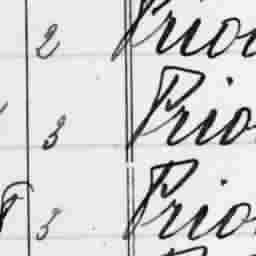 2 Prio
3 Prio
3 Prio